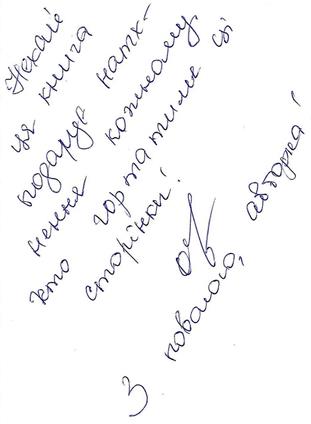 Нехай
ця книга
подарує натх-
нення кожному,
хто гортатиме ці
сторінки!
З повагою, авторка!